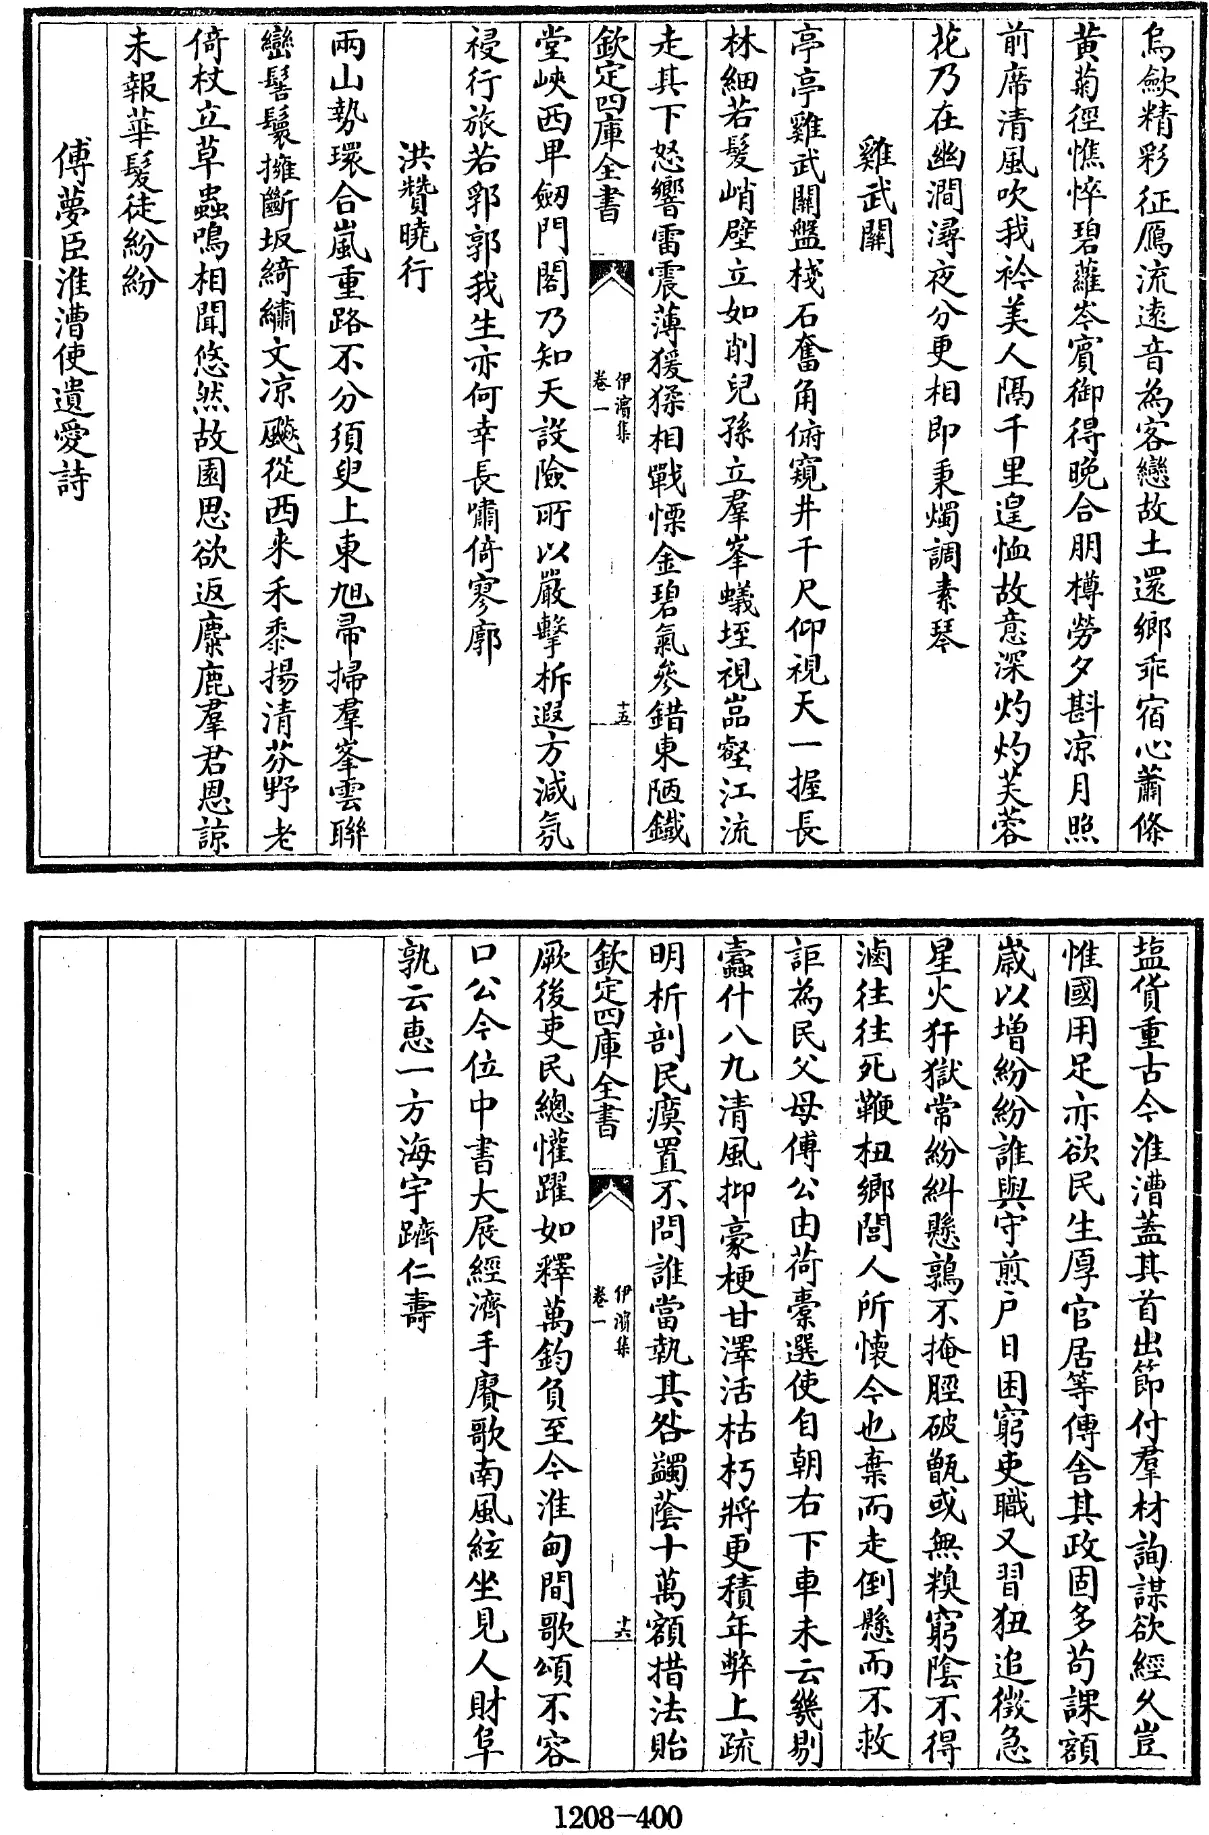 烏歛精彩征鴈流遠音為客戀故土還鄉乖宿心蕭條
黄菊徑憔悴碧蘿岑賓御得晚合朋樽勞夕斟凉月照
前席清風吹我衿美人隔千里遑恤故意深灼灼芙蓉
花乃在幽澗潯夜分更相即秉燭調素琴
雞武關
亭亭雞武關盤棧石奮角俯窺井千尺仰視天一握長
林細若髮峭壁立如削兒孫立羣峯蟻垤視嵓壑江流
走其下怒響雷震薄猨猱相戰慄金碧氣參錯東陋鐵
欽定四庫全書
伊濱集
卷一
十五
堂峽西卑劒門閣乃知天設險所以嚴擊柝遐方減氛
祲行旅若郛郭我生亦何幸長嘯倚寥廓
洪贊曉行
兩山勢環合嵐重路不分須臾上東旭帚掃羣峯雲聯
巒髻鬟擁斷坂綺繡文凉飈從西来禾黍揚清芬野老
倚杖立草蟲鳴相聞悠然故園思欲返麋鹿羣君恩諒
未報華髮徒紛紛
傅夢臣淮漕使遺愛詩
塩貨重古今淮漕蓋其首出節付羣材詢謀欲經久豈
惟國用足亦欲民生厚官居等傳舍其政固多茍課額
歲以增紛紛誰與守煎户日困窮吏職又習狃追徵急
星火犴獄常紛糾懸鶉不掩脛破甑或無糗窮陰不得
滷往往死鞭杻鄉閭人所懷今也棄而走倒懸而不救
詎為民父母傅公由荷橐選使自朝右下車未云幾剔
蠹什八九清風抑豪梗甘澤活枯朽將更積年弊上疏
明析剖民瘼置不問誰當執其咎蠲蔭十萬額措法貽
欽定四庫全書
伊濱集
卷一
十六
厥後吏民總懽躍如釋萬鈞負至今淮甸間歌頌不容
口公今位中書大展經濟手賡歌南風絃坐見人財阜
孰云惠一方海宇躋仁壽
1208-400